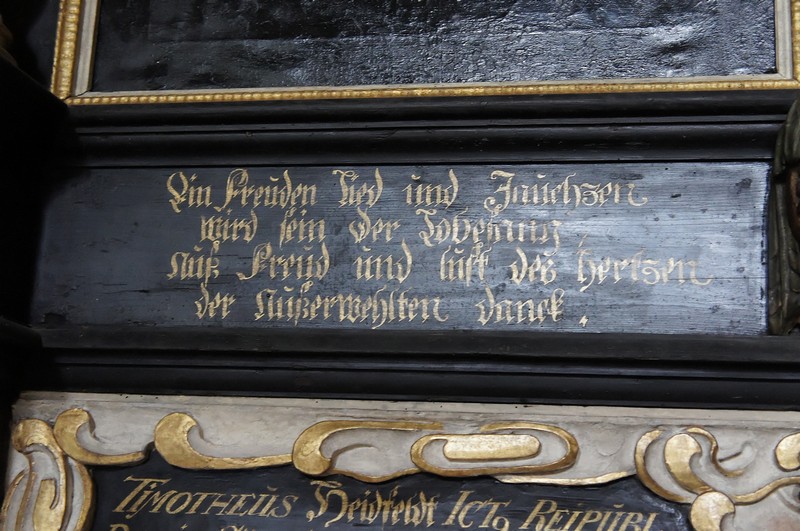 Ein Freuden Lied und Jauchsen
wird sein der Lobesang,
Auß Freud und lust des hertsen
der Außerwehlten danck.
TIMOTHEUS Heidfeldt ICT9 REIPUBL